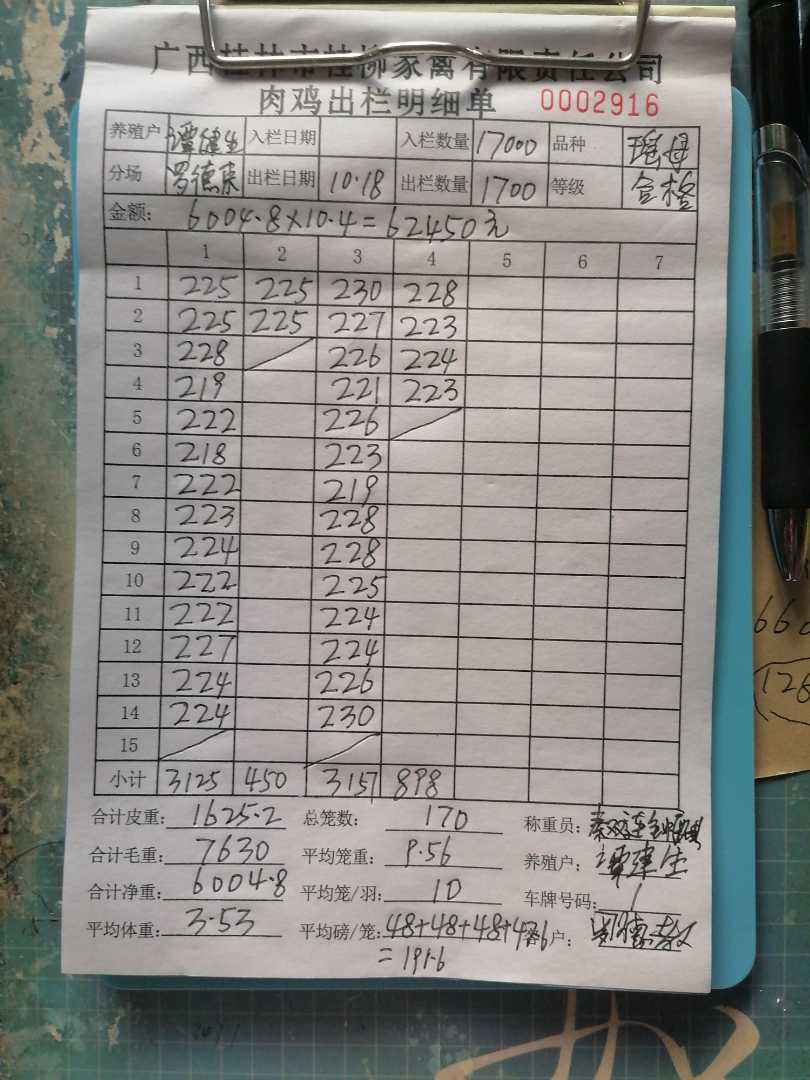 广西桂林市桂柳家禽有限责任公司
肉鸡出栏明细单 0002916
养殖户 谭健生 入栏日期 入栏数量 17000 品种 瑶母
分场 罗德来 出栏日期 10.18 出栏数量 1700 等级 合格
金额: 6004.8×10.4=62450元
1 2 3 4 5 6 7
1 225 225 230 228
2 225 225 227 223
3 228 226 224
4 219 221 223
5 222 226
6 218 223
7 222 219
8 223 228
9 224 228
10 222 225
11 222 224
12 227 224
13 224 226
14 224 230
15
小计 3125 450 3157 898
合计皮重: 1625.2 总笼数: 170 称重员:
合计毛重: 7630 平均笼重: 9.56 养殖户: 谭建生
合计净重: 6004.8 平均笼/羽: 10 车牌号码:
平均体重: 3.53 平均磅/笼: 48+48+48+47.6 户:
=191.6
660
128